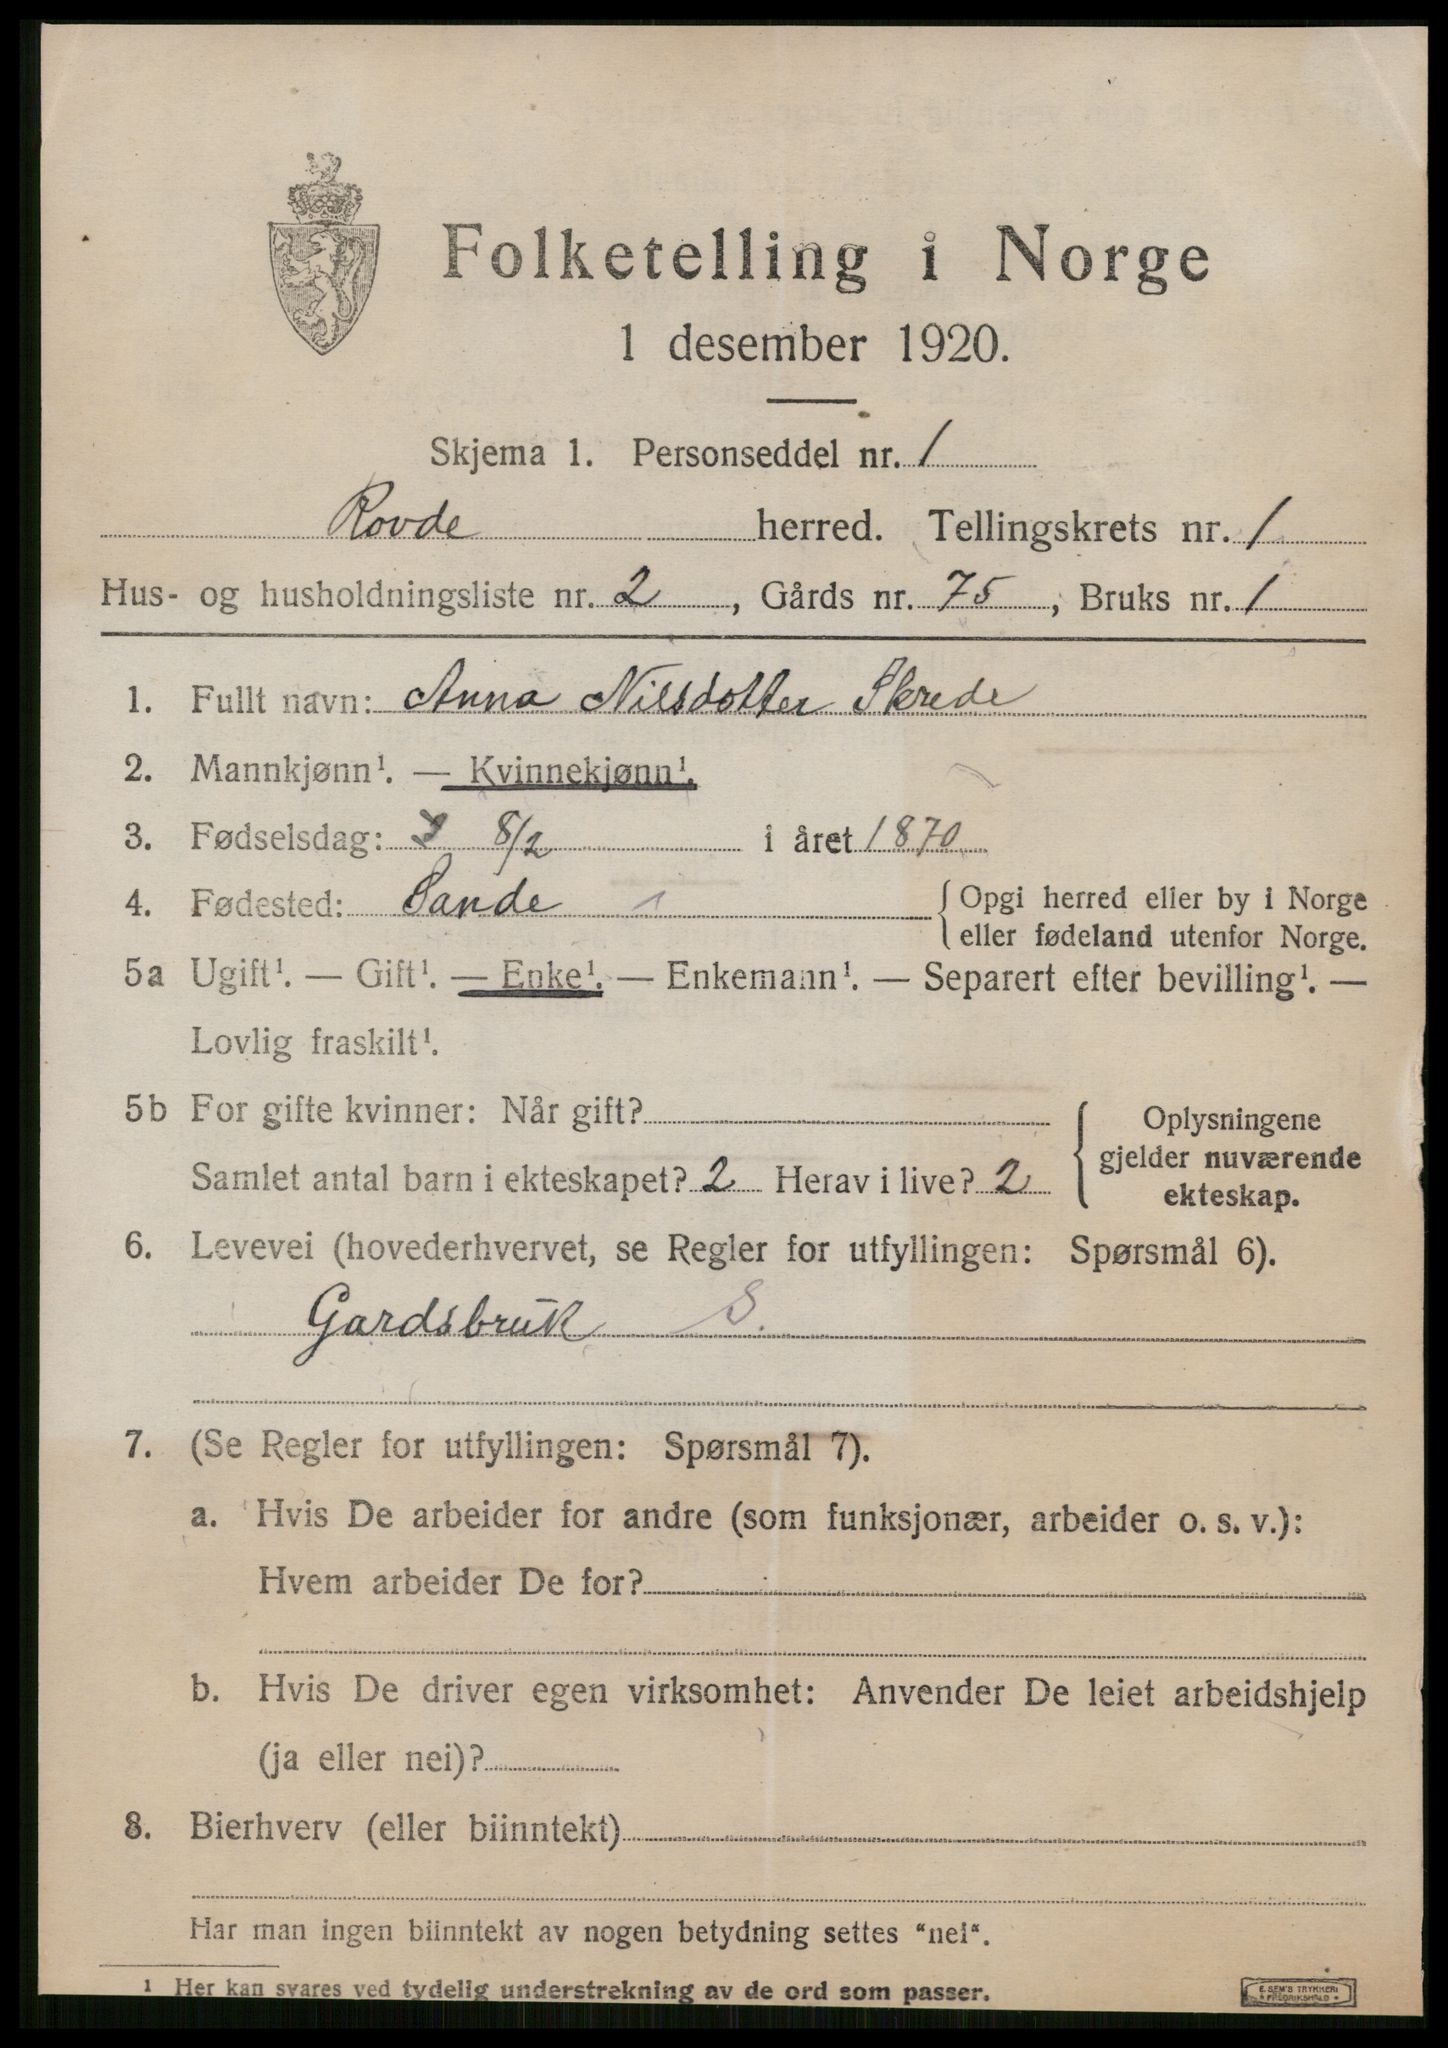 Folketelling i Norge
1 desember 1920.
Skjema 1. Personseddel nr. 1
Rovde herred. Tellingskrets nr. 1
Hus- og husholdningsliste nr. 2, Gårds nr. 75, Bruks nr. 1
1. Fullt navn: Anna Nilsdotter Skrede
2. Mannkjønn¹. — Kvinnekjønn¹.
3. Fødselsdag: 8/2 i året 1870
4. Fødested: Sande
{ Opgi herred eller by i Norge
eller fødeland utenfor Norge.
5a Ugift¹. — Gift¹. — Enke¹. — Enkemann¹. — Separert efter bevilling¹. —
Lovlig fraskilt¹.
5b For gifte kvinner: Når gift?
Samlet antal barn i ekteskapet? 2 Herav i live? 2
{ Oplysningene
gjelder nuværende
ekteskap.
6. Levevei (hovederhvervet, se Regler for utfyllingen: Spørsmål 6).
Gardsbruk S.
7. (Se Regler for utfyllingen: Spørsmål 7).
a. Hvis De arbeider for andre (som funksjonær, arbeider o. s. v.):
Hvem arbeider De for?
b. Hvis De driver egen virksomhet: Anvender De leiet arbeidshjelp
(ja eller nei)?
8. Bierhverv (eller biinntekt)
Har man ingen biinntekt av nogen betydning settes “nei“.
1 Her kan svares ved tydelig understrekning av de ord som passer.
E. SEM'S TRYKKERI
FREDRIKSHALD